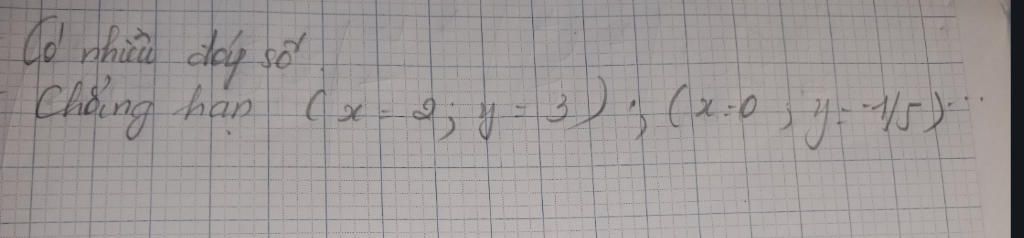 Có nhiều dãy số.
Chẳng hạn (x = 2; y = 3); (x = 0; y = -1/5)...